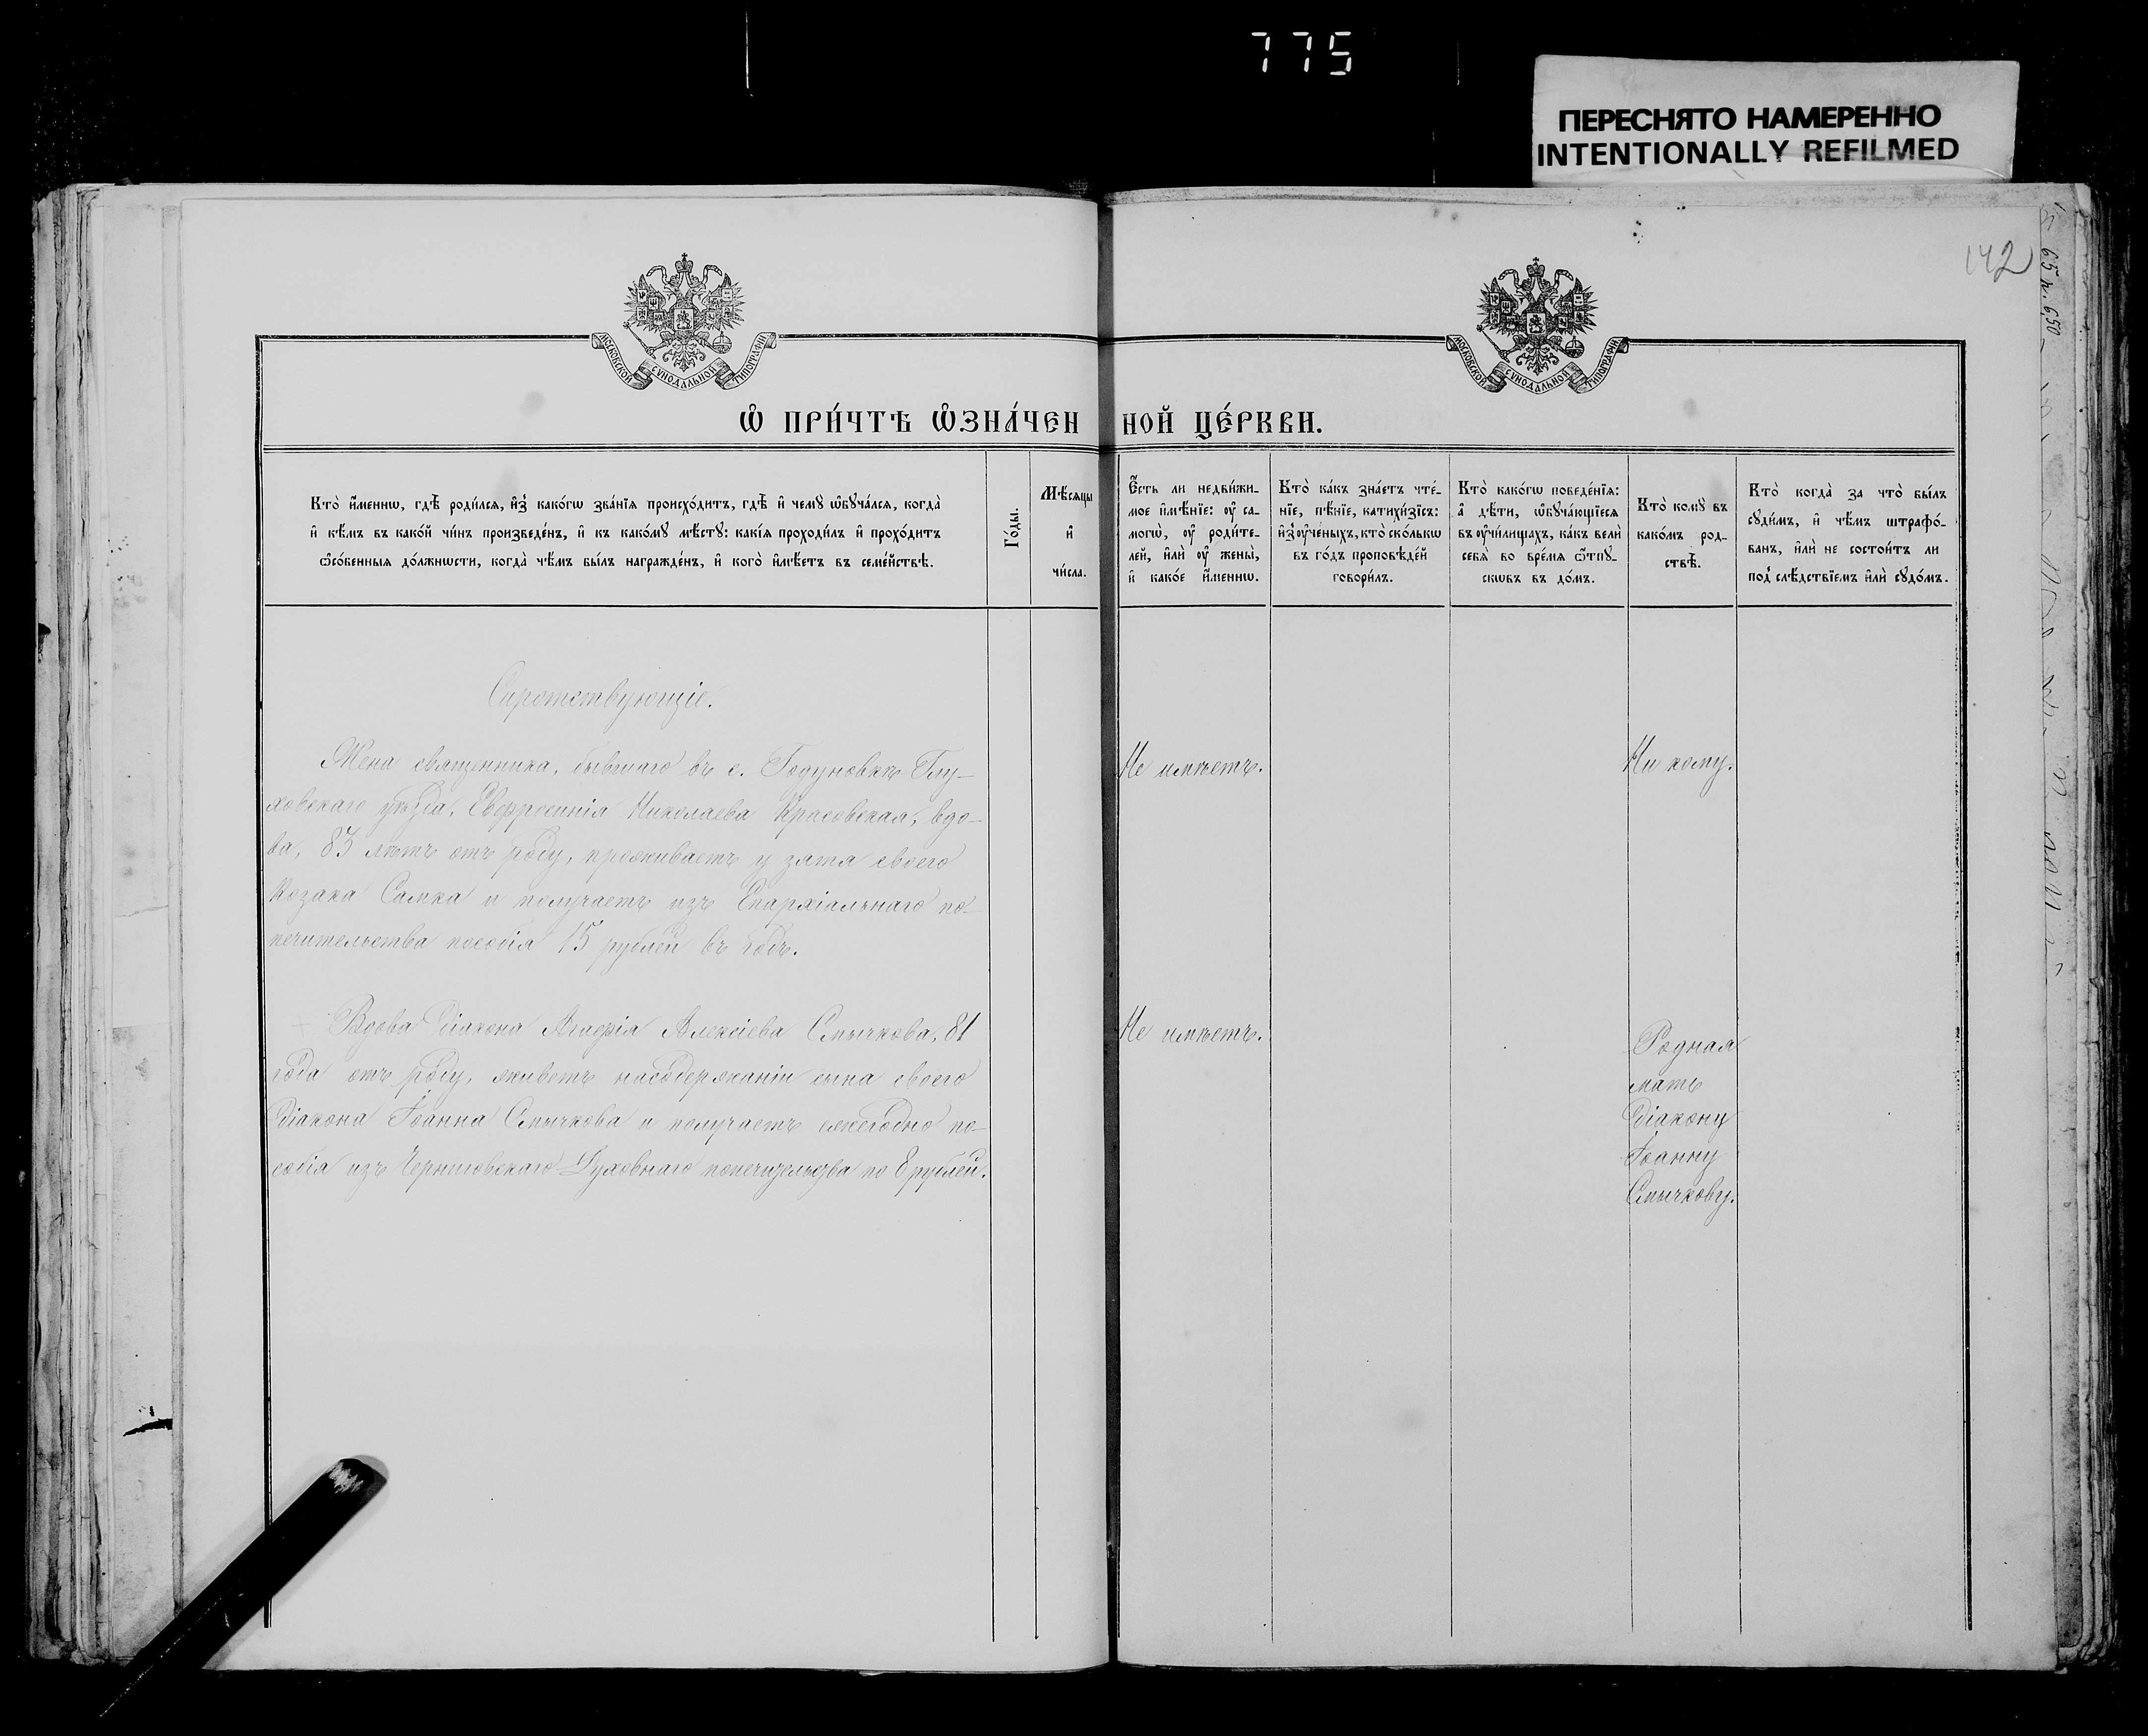 775
ПЕРЕСНЯТО НАМЕРЕННО
INTENTIONALLY REFILMED
142
65 к. 650
МОСКОВСКОЙ СУНОДАЛЬНОЙ ТИПОГРАФІИ
МОСКОВСКОЙ СУНОДАЛЬНОЙ ТИПОГРАФІИ
Ѡ ПРИ́ЧТѢ ѠЗНА́ЧЕН НОЙ ЦЕ́РКВИ.
Кто̀ и҆́меннѡ, гдѣ̀ роди́лсѧ, и҆з̾ како́гѡ зва́нїѧ происхо́дитъ, гдѣ̀ и҆ чемꙋ̀ ѡ҆бꙋча́лсѧ, когда̀
и҆ кѣ́мъ въ како́й чи́нъ произведе́нъ, и҆ къ како́мꙋ мѣ́стꙋ: какі́ѧ проходи́лъ и҆ прохо́дитъ
ѻ҆со́бенныѧ до́лжнѡсти, когда̀ чѣ́мъ бы́лъ награжде́нъ, и҆ кого̀ и҆мѣ́етъ въ семе́йствѣ.
Го́ды.
Мѣ́сѧцы
и҆
чи́сла.
Є҆́сть ли недви́жи-
мое и҆мѣ́нїе: ᲂу҆ са-
могѡ̀, ᲂу҆ роди́те-
лей, и҆лѝ ᲂу҆ жены̀,
и҆ како́е и҆́меннѡ.
Кто̀ ка́къ зна́етъ чте́-
нїе, пѣ́нїе, катихи́зїсъ:
и҆з̾ ᲂу҆че́ныхъ, кто̀ ско́лькѡ
въ го́дъ проповѣ́дей
говори́лъ.
Кто̀ како́гѡ поведе́нїѧ:
а҆ дѣ́ти, ѡ҆бꙋча́ющїесѧ
въ ᲂу҆чи́лищахъ, ка́къ велѝ
себѧ̀ во вре́мѧ ѿпꙋ-
скѡвъ въ до́мъ.
Кто̀ комꙋ̀ въ
како́мъ род-
ствѣ̀.
Кто̀ когда̀ за что̀ бы́лъ
сꙋди́мъ, и҆ чѣ́мъ штрафо́-
ванъ, и҆лѝ не состои́тъ ли
под̾ слѣ́дствїемъ и҆лѝ сꙋдо́мъ.
Сиротствующіе.
Жена священника, бывшаго въ с. Годуновкѣ Глу-
ховскаго уѣзда, Евфросинія Николаева Красовская, вдо-
ва, 83 лѣтъ отъ роду, проживаетъ у зятя своего
козака Самка и получаетъ изъ Епархіальнаго по-
печительства пособія 15 рублей въ годъ.
Не имѣетъ.
Ни кому.
Вдова Діакона Агафія Алексіева Смычкова, 81
года отъ роду, живетъ насодержаніи сына своего
Діакона Іоанна Смычкова и получаетъ ежегодно по-
собія изъ Черниговскаго Духовнаго попечительства по 8 рублей.
Не имѣетъ.
Родная
мать
Діакону
Іоанну
Смычкову.